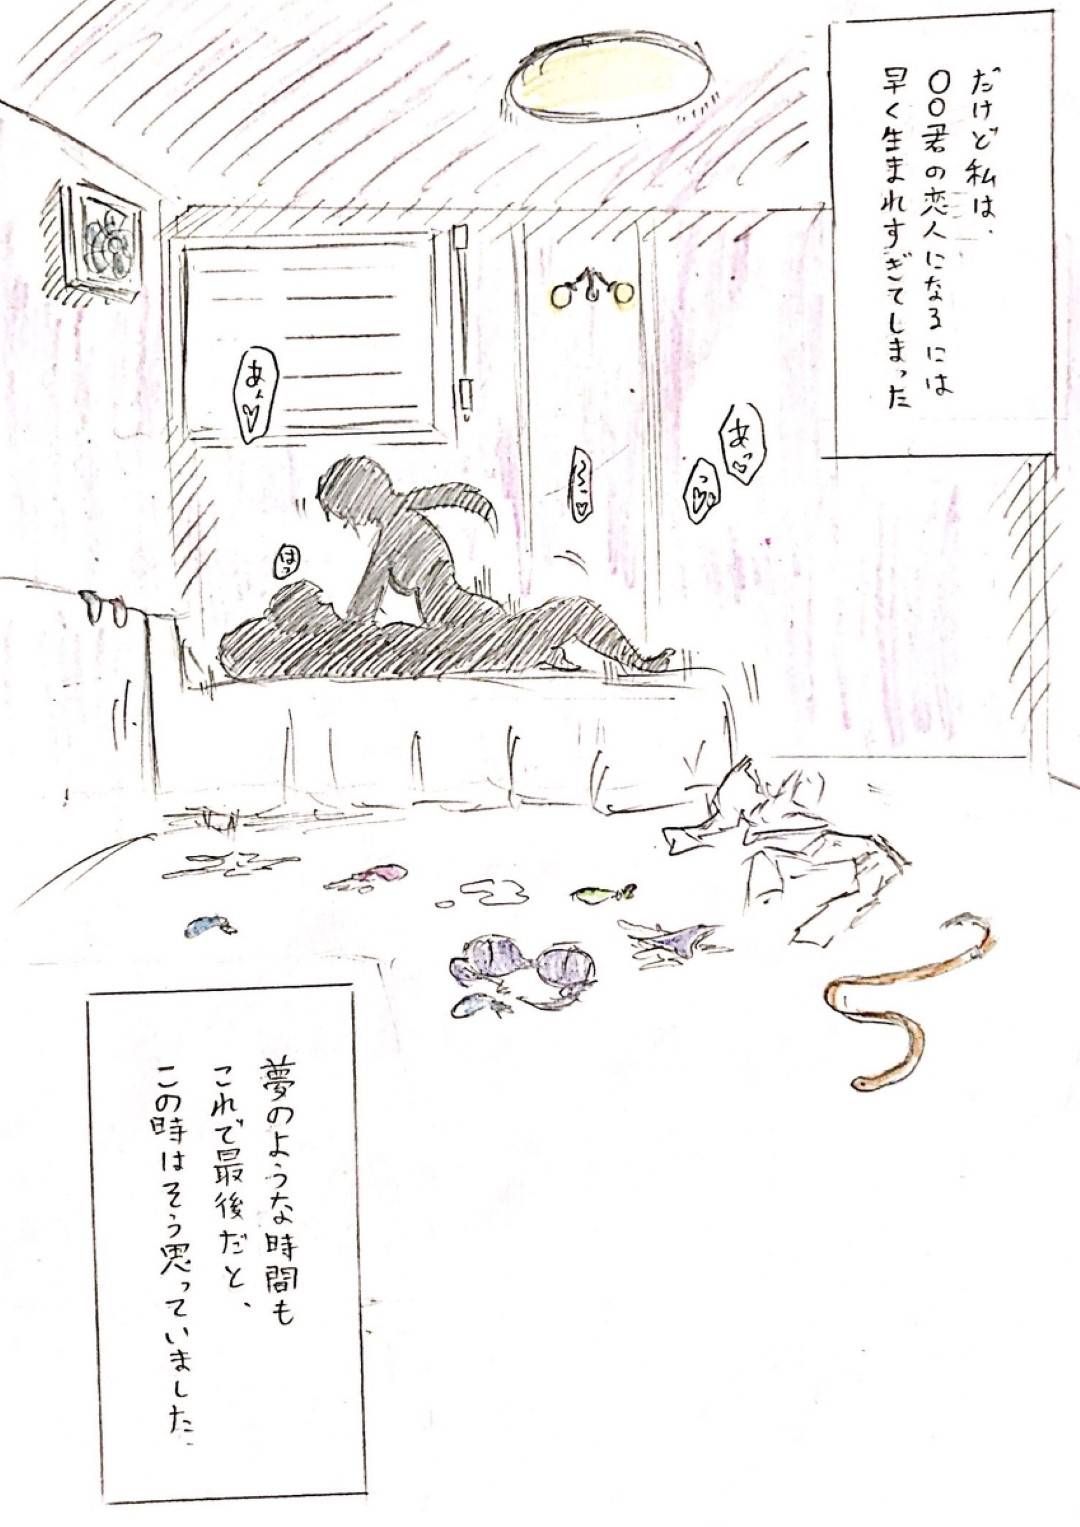 だけど私は、
〇〇君の恋人になるには
早く生まれすぎてしまった
あっ♡
っ♡
あぁ♡
はっ
夢のような時間も
これで最後だと、
この時はそう思っていました。